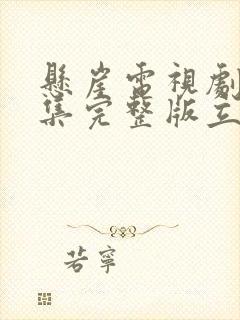 懸崖電視劇
集完整版立
若寧